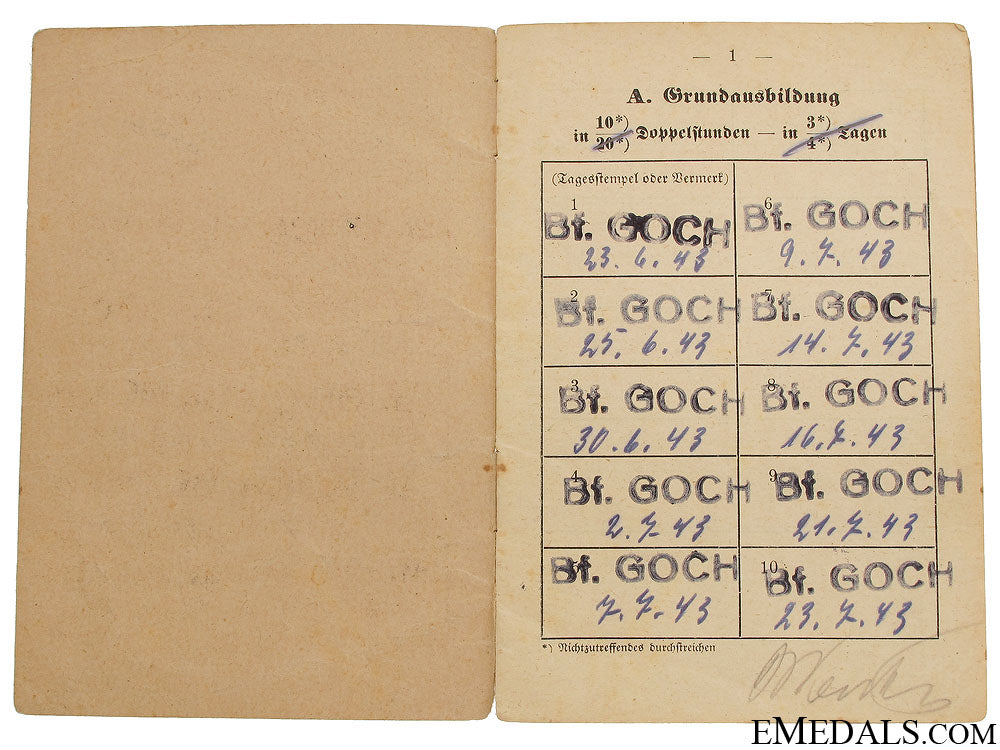 — 1 —
A. Grundausbildung
in 10*)/20*) Doppelstunden — in 3*)/4*) Tagen
(Tagesstempel oder Vermerk)
1
Bf. GOCH
23. 6. 43
2
Bf. GOCH
25. 6. 43
3
Bf. GOCH
30. 6. 43
4
Bf. GOCH
2. 7. 43
5
Bf. GOCH
7. 7. 43
6
Bf. GOCH
9. 7. 43
7
Bf. GOCH
14. 7. 43
8
Bf. GOCH
16. 7. 43
9
Bf. GOCH
21. 7. 43
10
Bf. GOCH
23. 7. 43
*) Nichtzutreffendes durchstreichen
EMEDALS.COM